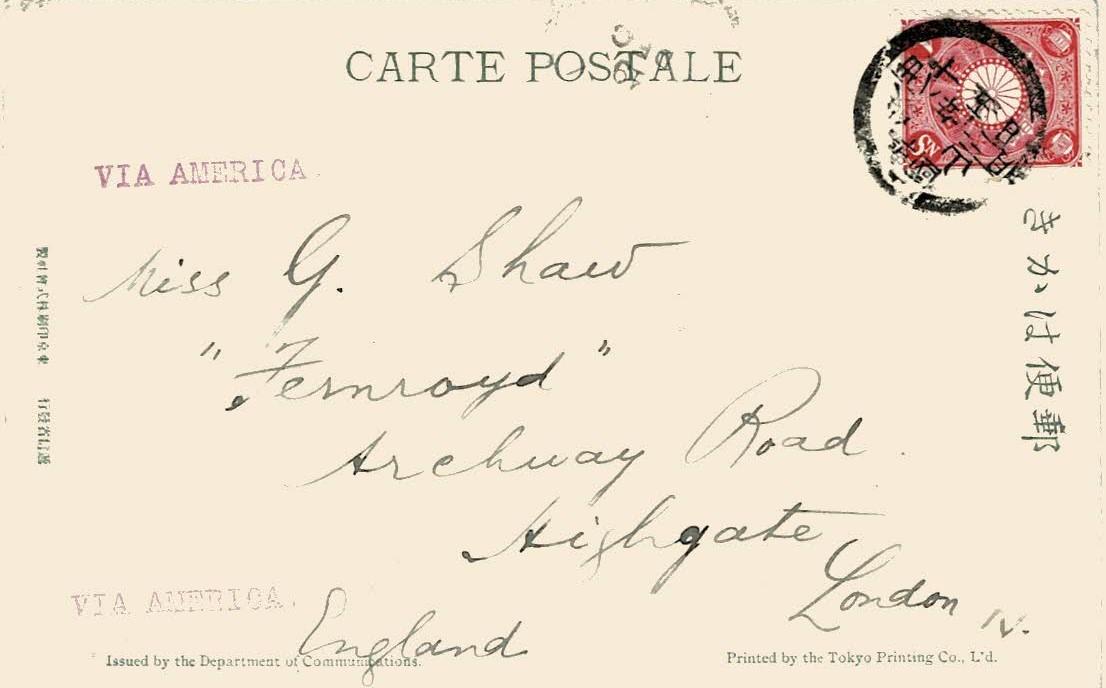 CARTE POSTALE
VIA AMERICA
Miss G. Shaw
"Fernroyd"
Archway Road.
Highgate
London N.
England
VIA AMERICA.
Issued by the Department of Communications.
Printed by the Tokyo Printing Co., L'd.
郵便はかき